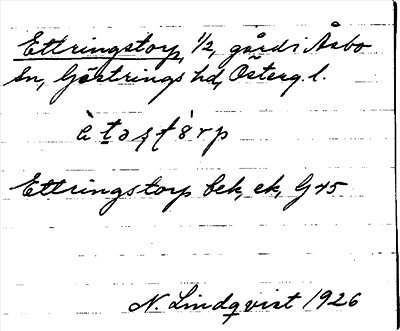 Ettringstorp, 1/2, gård i Åsbo
sn, Göstrings hd, Österg. l.
Ettringstorp bek, ek, G 45
N. Lindqvist 1926